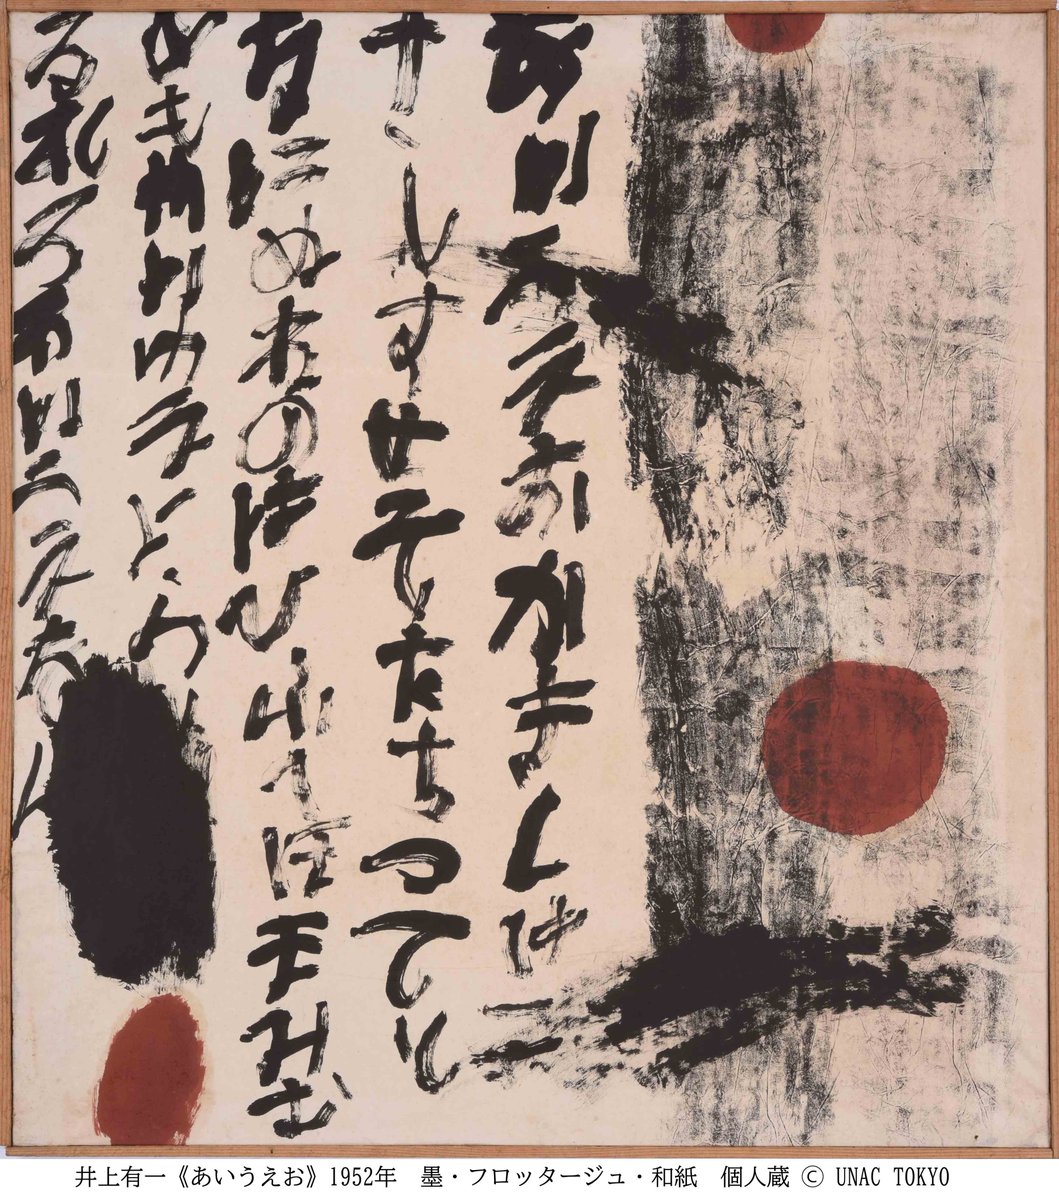 あいうえおかきくけこ
さしすせそたちつてと
なにぬねのはひふへほまみむ
めもやいゆえよらり
るれろわゐうゑをん
井上有一《あいうえお》1952年　墨・フロッタージュ・和紙　個人蔵 Ⓒ UNAC TOKYO